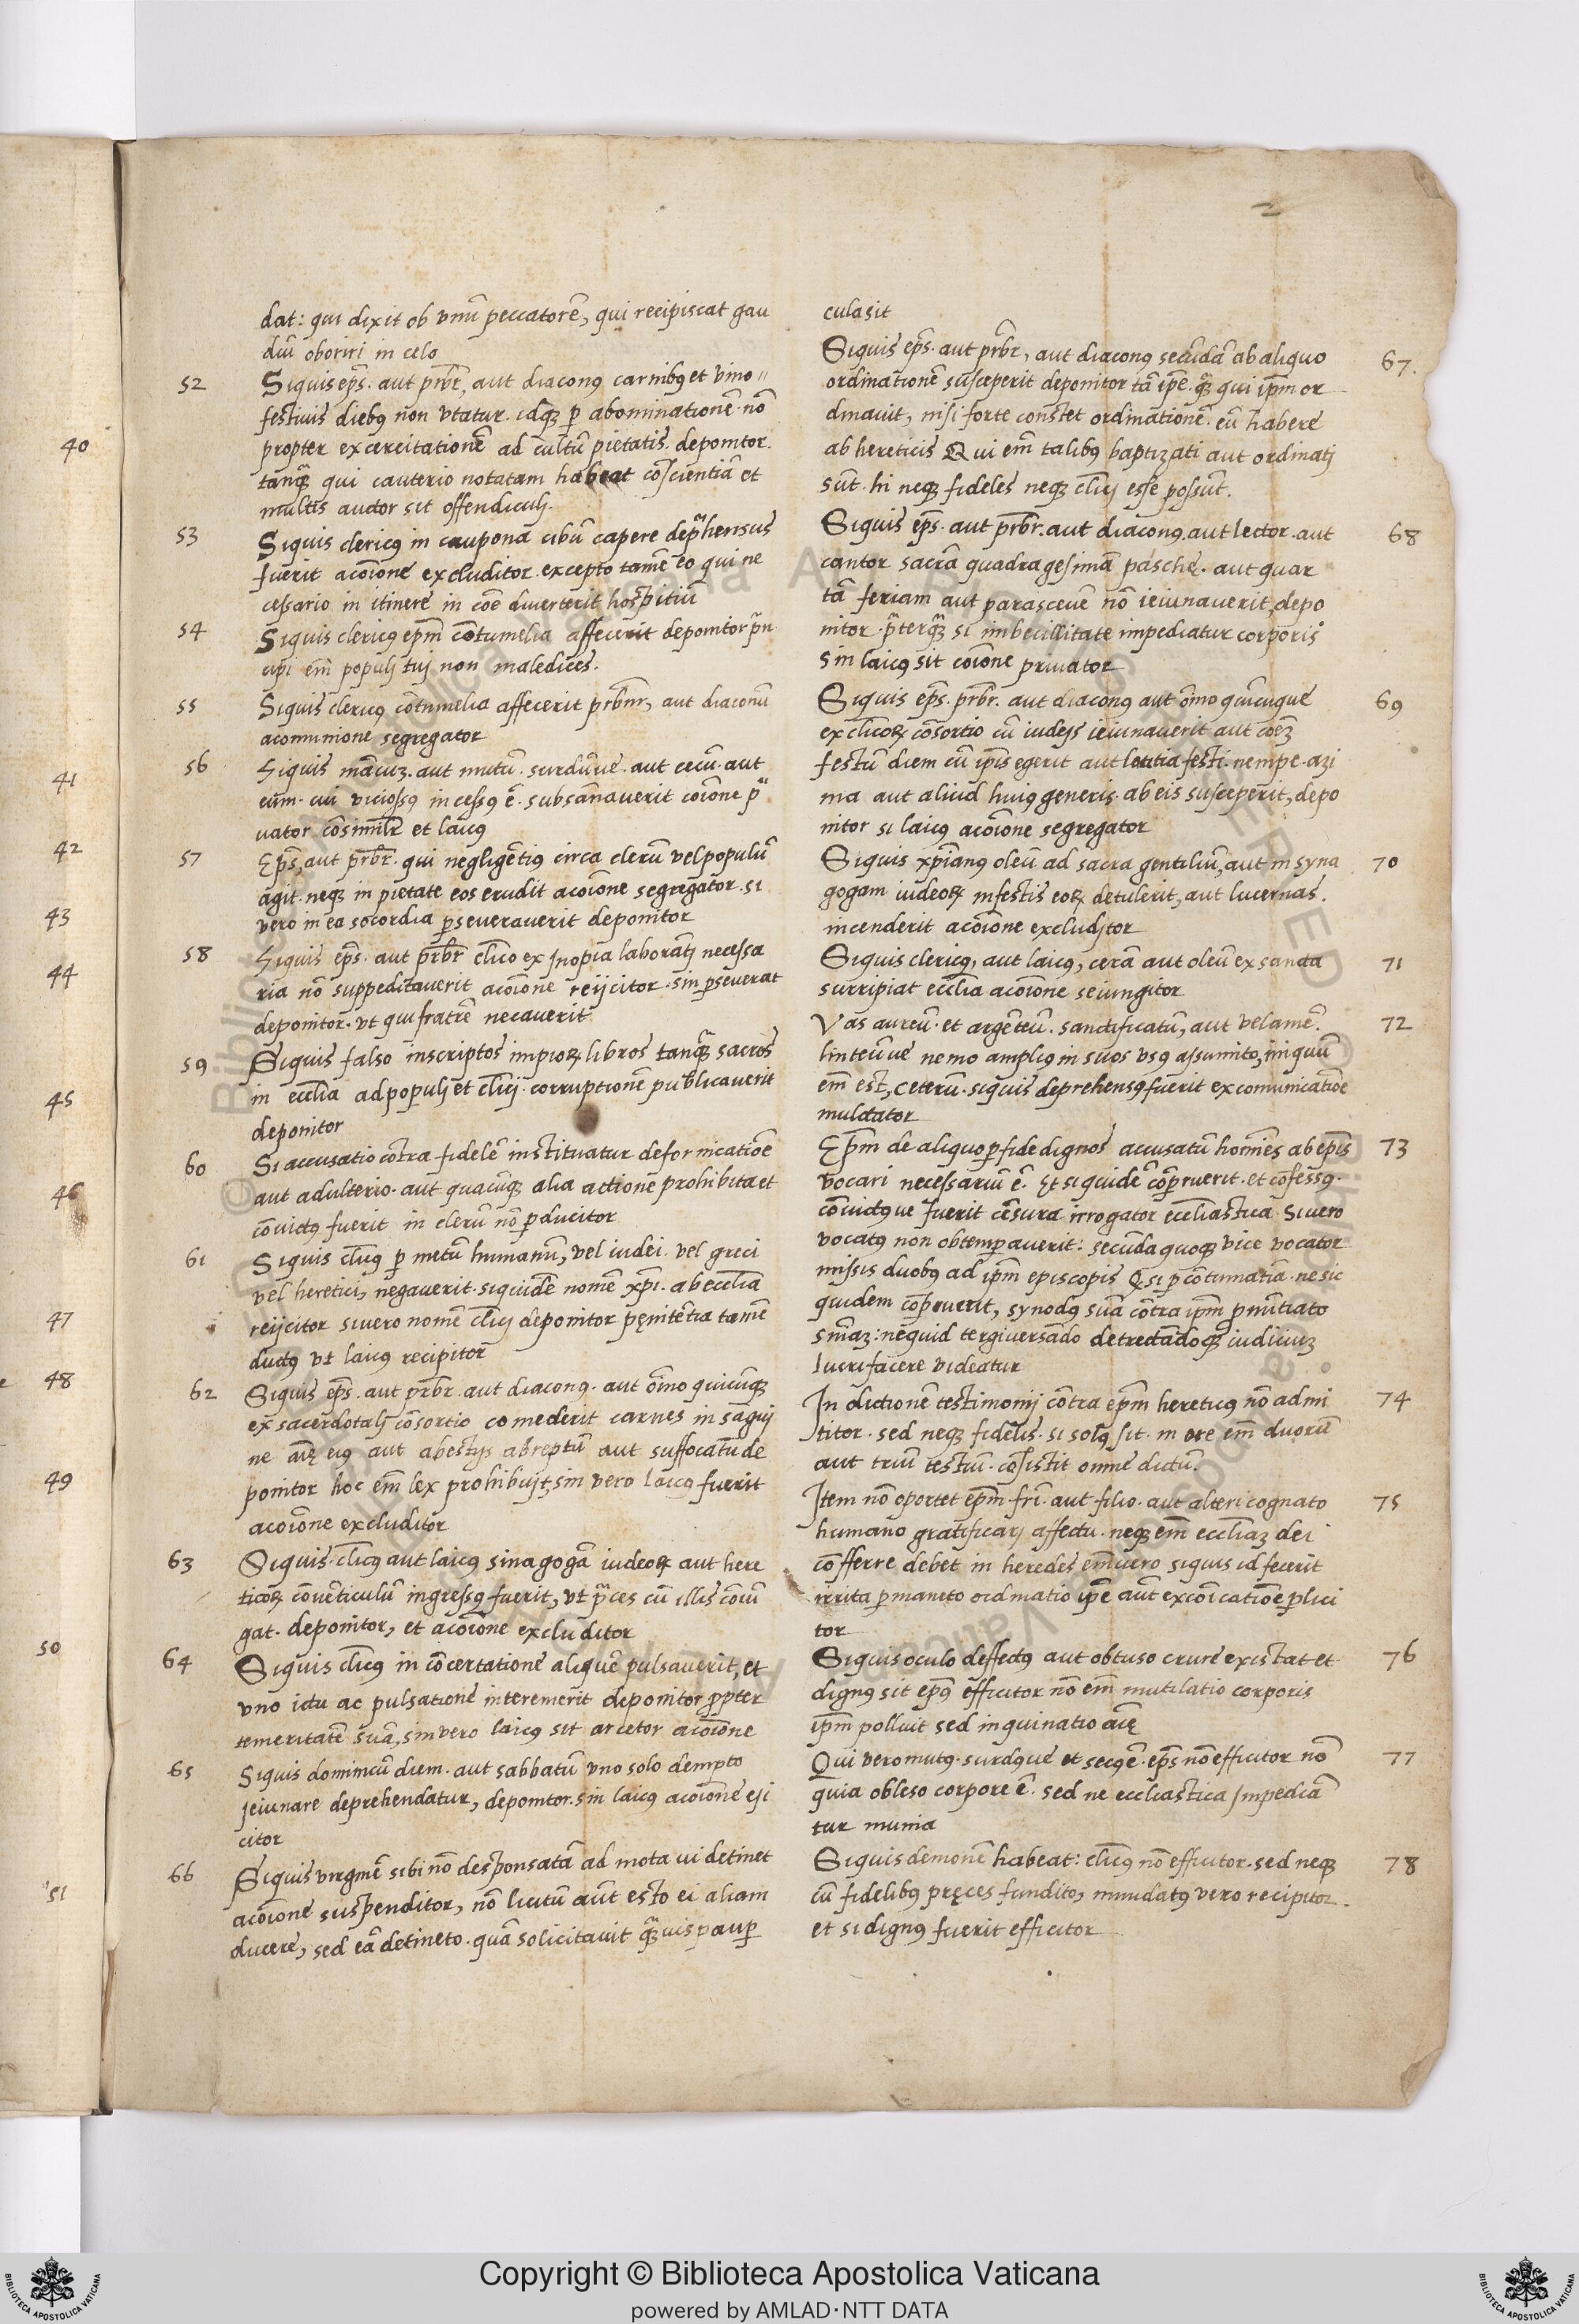 2
dat: qui dixit ob vnū peccatorē, qui recipiscat gau
diū oboriri in celo
52 Siquis ep̄s. aut prb̄r, aut diaconꝰ carnibꝰ et vino
festiuis diebꝰ non vtatur. idqꝫ ꝑ abominationē. nō
propter excercitationē ad cultū pietatis. deponitor.
tanqꝫ qui cauterio notatam habeat cōscientiā et
multis auctor sit offendiculj.
53 Siquis clericꝰ in caupona cibū capere dep̄hensus
fuerit acōione excluditor. excepto tamē eo qui ne
cessario in itinere in cōe diuerterit hospitiū
54 Siquis clericꝰ ep̄m cōtumelia affecerit deponitor p̄n
cipi em̄ populj tuj non maledices.
55 Siquis clericꝰ cōtumelia affecerit prb̄rm, aut diaconū
acomunione segregator
56 Siquis mācuꝫ. aut mutū. surdūue. aut cecū. aut
eum. cui viciosꝰ incessꝰ ē. subsānauerit coīone p̄
uator cōsimilr̄ et laicꝰ
57 Ep̄s, aut prb̄r. qui negligētiꝰ circa clerū vel populū
agit. neqꝫ in pietate eos erudit acoīone segregator. si
vero in ea socordia ꝑseuerauerit deponitor
58 Siquis ep̄s. aut prb̄r cl̄ico ex jnopia laborātj necessa
ria nō suppeditauerit acoīone reijcitor. sin ꝑseuerat
deponitor. vt qui fratrē necauerit
59 Siquis falso inscriptos impioꝝ libros tanqꝫ sacros
in eccl̄ia ad populj et cl̄icj. corruptionē publicauerit
deponitor
60 Si accusatio cōtra fidelē instituatur de fornicatiōe
aut adulterio. aut quacūqꝫ alia actione prohibita et
cōuictꝰ fuerit in clerū nō ꝑducitor
61 Siquis cl̄icꝰ ꝑ metū humanū, vel iudei. vel greci
vel heretici, negauerit. siquidē nomē xp̄i. ab eccl̄ia
reijcitor si vero nomē cl̄icj deponitor pęnitētia tamē
ductꝰ vt laicus recipitor
62 Siquis ep̄s. aut prb̄r. aut diaconꝰ. aut oīno quicūqꝫ
ex sacerdotalj cōsortio comederit carnes in sāguj
ne aīę eiꝰ aut abestijs abreptū aut suffocatū de
ponitor hoc em̄ lex prohibuit, sin vero laicꝰ fuerit
acoīone excluditor
63 Siquis. cl̄icꝰ aut laicꝰ sinagogā iudeoꝝ aut here
ticoꝝ cōuēticulū ingressꝰ fuerit, vt p̄ces cū illis cōiū
gat. deponitor, et acoīone excluditor
64 Siquis cl̄icꝰ in cōcertatione aliquē pulsauerit, et
vno ictu ac pulsatione interemerit deponitor ꝓpter
temeritatē suā, sin vero laicꝰ sit arcetor acoīone
65 Siquis dominicū diem. aut sabbatū vno solo dempto
jeiunare deprehendatur, deponitor. sin laicꝰ acoīone eji
citor
66 Siquis virginē sibi nō desponsatā ad mota vi detinet
acoīone suspenditor, nō licitū aūt esto ei aliam
ducere, sed eā detineto. quā solicitauit qꝫuis pauꝑ
culasit
Siquis ep̄s. aut prb̄r, aut diaconꝰ secūdā ab aliquo 67.
ordinationē susceperit deponitor tā ip̄e. qꝫ qui ip̄m or
dinauit, nisi forte constet ordinationē. eū habere
ab hereticis Qui em̄ talibꝰ baptizati aut ordinatj
sūt. hi neqꝫ fideles neqꝫ cl̄icj esse possūt.
Siquis ep̄s. aut prb̄r. aut diaconꝰ. aut lector. aut 68
cantor sacrā quadragesimā pasche. aut quar
tā feriam aut parasceuē nō ieiunauerit, depo
nitor. p̄terqꝫ si imbecillitate impediatur corporis
sin laicꝰ sit coīone priuator
Siquis ep̄s. prb̄r. aut diaconꝰ aut oīno quicuque 69
ex cl̄icoꝝ cōsortio cū iudejs ieiunauerit aut cōeꝫ
festū diem cū ip̄is egerit aut letitia festi. nempe. azi
ma aut aliud huiꝰ generis. ab eis susceperit, depo
nitor si laicꝰ acoīone segregator
Siquis xp̄ianꝰ oleū ad sacra gentiliū, aut in syna 70
gogam iudeoꝝ in festis eoꝝ detulerit, aut lucernas.
incenderit acoīone excluditor
Siquis clericꝰ, aut laicꝰ, cerā aut oleū ex sancta 71
surripiat eccl̄ia acoīone seiungitor
Vas aureū. et argēteū. sanctificatū, aut velamē. 72
linteūue nemo ampliꝰ in suos vsꝰ assumito, iniquū
em̄ est, ceterū. siquis deprehensꝰ fuerit excomunicatiōe
mulctator
Ep̄m de aliquo ꝑ fide dignos accusatū homīes ab ep̄is 73
vocari necessariū ē. Et siquidē cōꝑuerit. et cōfessꝰ.
cōuictꝰue fuerit cēsura irrogator eccl̄iastica. Si vero
vocatꝰ non obtemꝑauerit: secūda quoqꝫ vice vocator
missis duobꝰ ad ip̄m episcopis Qsi ꝑ cōtumatiā. ne sic
quidem cōꝑuerit, synodꝰ suā cōtra ip̄m ꝓnūtiato
sn̄iaꝫ: nequid tergiuersādo detrectādoqꝫ iudiciuꝫ
lucrifacere videatur
In dictionē testimonij cōtra ep̄m hereticꝰ nō admi 74
titor. sed neqꝫ fidelis. si solꝰ sit. in ore em̄ duorū
aut triū testiū. cōsistit omne dictū.
Item nō oportet ep̄m. fr̄i. aut filio. aut alteri cognato 75
humano gratificarj affectu. neqꝫ em̄ eccl̄iaꝫ dei
cōfferre debet in heredes em̄uero siquis id fecerit
irrita ꝑmaneto ordinatio ip̄e aūt excōicatiōe plici
tor
Siquis oculo deffectꝰ aut obtuso crure existat et 76
dignꝰ sit ep̄ꝰ efficitor nō em̄ mutilatio corporis
ip̄m polluit sed inquinatio aīę
Qui vero mutꝰ. surdꝰque et cecꝰ ē. ep̄s nō efficitor nō 77
quia obleso corpore ē. sed ne eccl̄iastica jmpediā
tur munia
Siquis demonē habeat: cl̄icꝰ nō efficitor. sed neqꝫ 78
cū fidelibꝰ pręces fundito, mundatꝰ vero recipitor.
et si dignꝰ fuerit efficitor
40
41
42
43
44
45
46
47
48
49
50
51
Copyright © Biblioteca Apostolica Vaticana
powered by AMLAD·NTT DATA